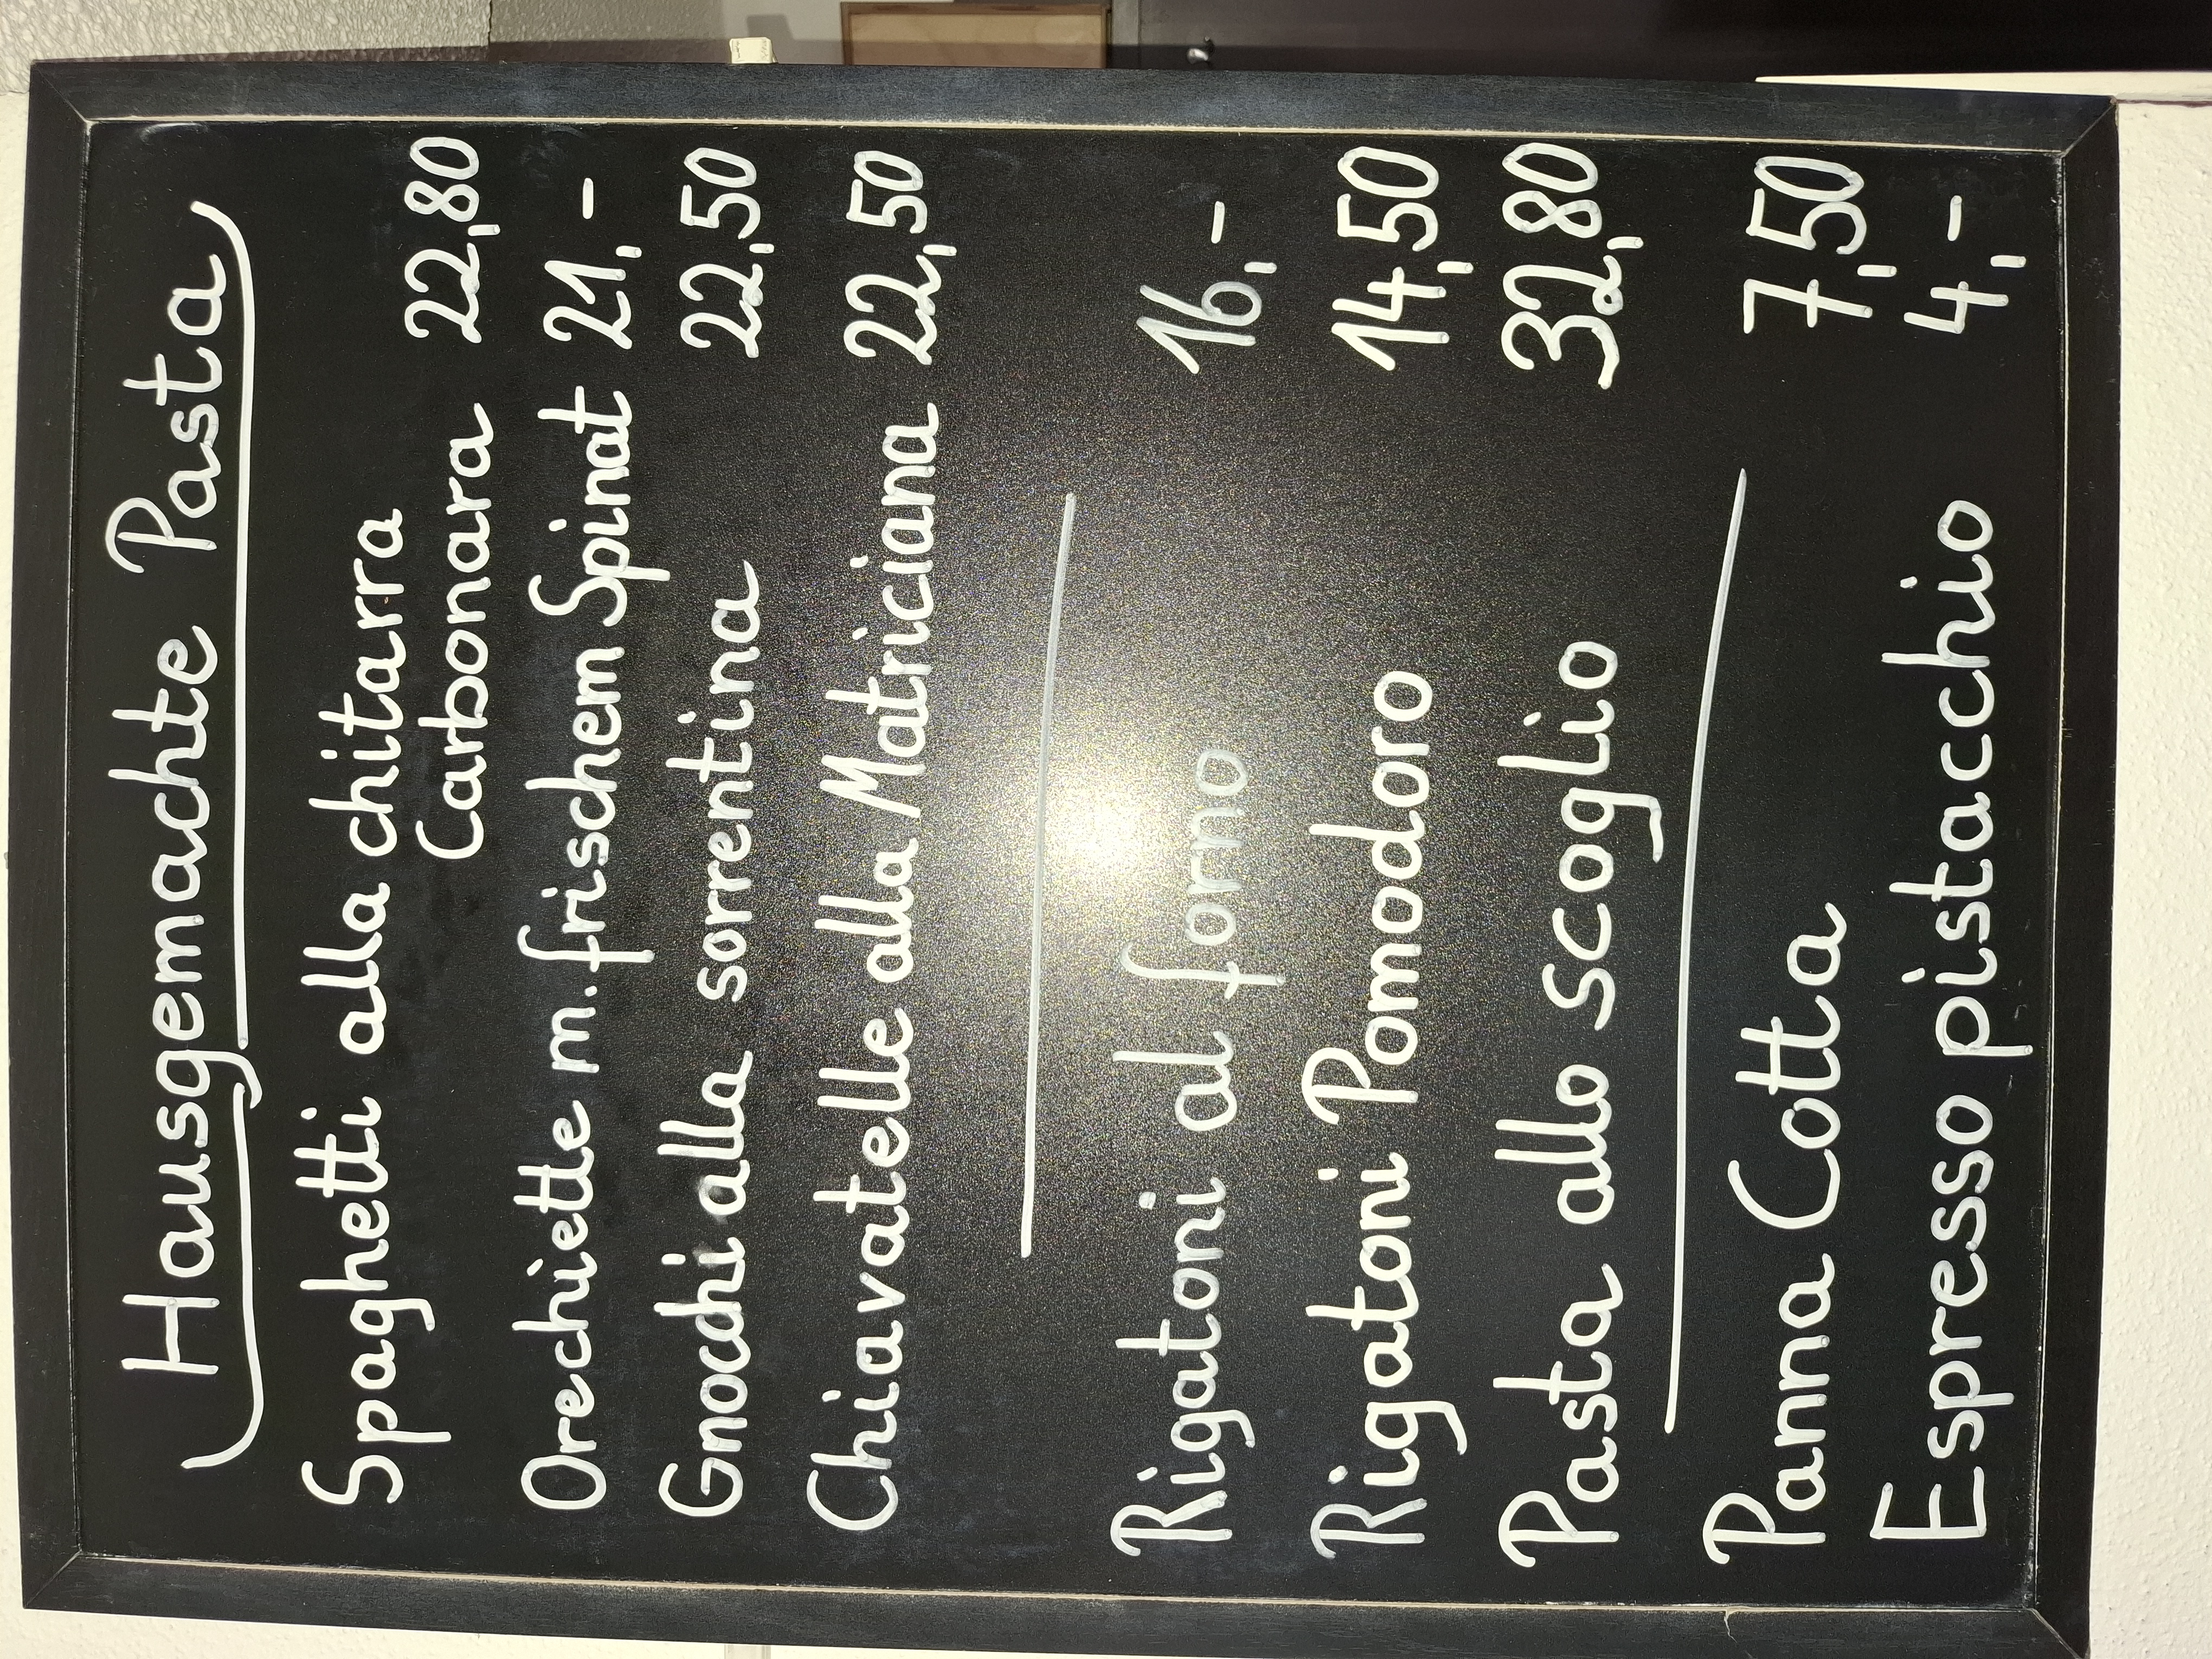 Hausgemachte Pasta
Spaghetti alla chitarra
Carbonara 22,80
Orechiette m. frischem Spinat 21,-
Gnocchi alla sorrentina 22,50
Chiavatelle alla Matriciana 22,50
Rigatoni al forno 16,-
Rigatoni Pomodoro 14,50
Pasta allo scoglio 32,80
Panna Cotta 7,50
Espresso pistacchio 4,-